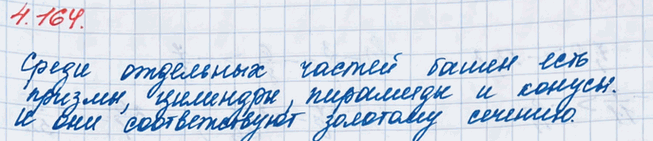 4.164.
Среди отдельных частей башен есть
призмы, цилиндры, пирамиды и конусы.
И они соответствуют золотому сечению.